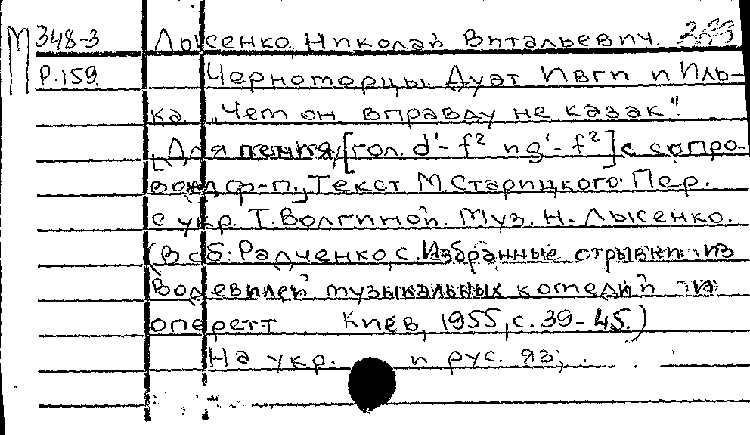 М 348-3 Лысенко, Николай Витальевич
Р.159 Черноморцы. Дуэт Ивги и Иль-
ка „Чем он вправду не казак".
[Для пения, [гол. d'- f² и g'- f²] с сопро-
вожд. ф-п.] Текст М. Старицкого. Пер.
с укр. Т. Волгиной. Муз. Н. Лысенко.
(В сб: Радченко, С. Избранные отрывки из
водевилей музыкальных комедий и
оперетт Киев, 1955, с. 39-45.)
На укр. и рус. яз.